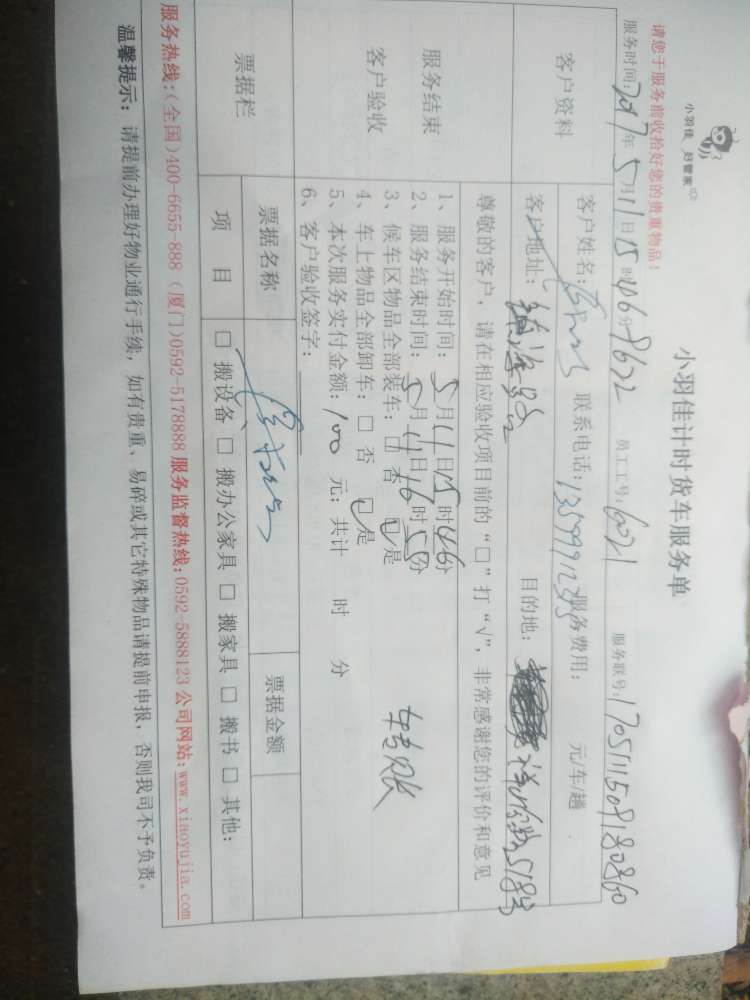 小羽佳 好管家
小羽佳计时货车服务单
请您于服务前收拾好您的贵重物品！
服务时间：2017年5月11日15时46分 9622 员工工号：6021 服务联号：170511509180860
客户资料
客户姓名： 联系电话： 服务费用： 元/车/趟
客户地址： 目的地：
尊敬的客户，请在相应验收项目前的“□”打“√”，非常感谢您的评价和意见
服务结束
客户验收
1、服务开始时间：5月11日15时46分
2、服务结束时间：5月11日16时55分
3、候车区物品全部装车：□否 □是
4、车上物品全部卸车：□否 □是
5、本次服务实付金额：100元；共计 时 分
6、客户验收签字：
转账
票据栏
票据名称 票据金额
项目 □搬设备 □搬办公家具 □搬家具 □搬书 □其他：
服务热线：(全国)400-6655-888 (厦门)0592-5178888 服务监督热线：0592-5888123 公司网站：www.xiaoyujia.com
温馨提示：请提前办理好物业通行手续，如有贵重、易碎或其它特殊物品请提前申报，否则我司不予负责。